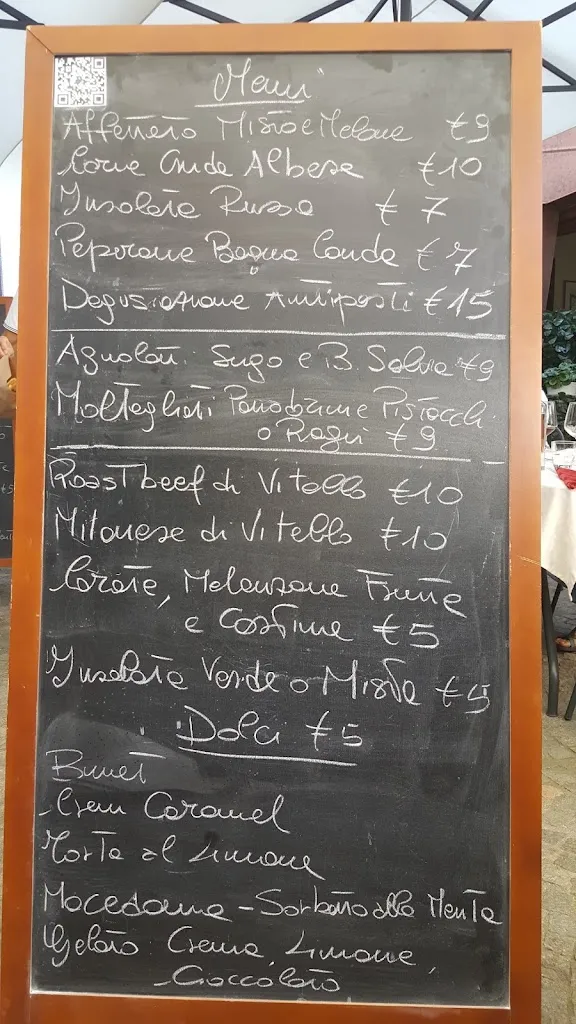 Menù
Affettato Misto e Melone €9
Carne Cruda Albese €10
Insalata Russa € 7
Peperone Bagna Cauda € 7
Degustazione Antipasti €15
Agnolotti: Sugo e B. Salvia €9
Maltagliati Pomodorini e Pistacchi
o Ragù €9
Roast beef di Vitello €10
Milanese di Vitello €10
Carote, Melanzane Fritte
e Costine €5
Insalata Verde o Mista €5
Dolci €5
Bunet
Crem Caramel
Torta al Limone
Macedonia - Sorbetto alla Menta
Gelato: Crema, Limone,
Cioccolato